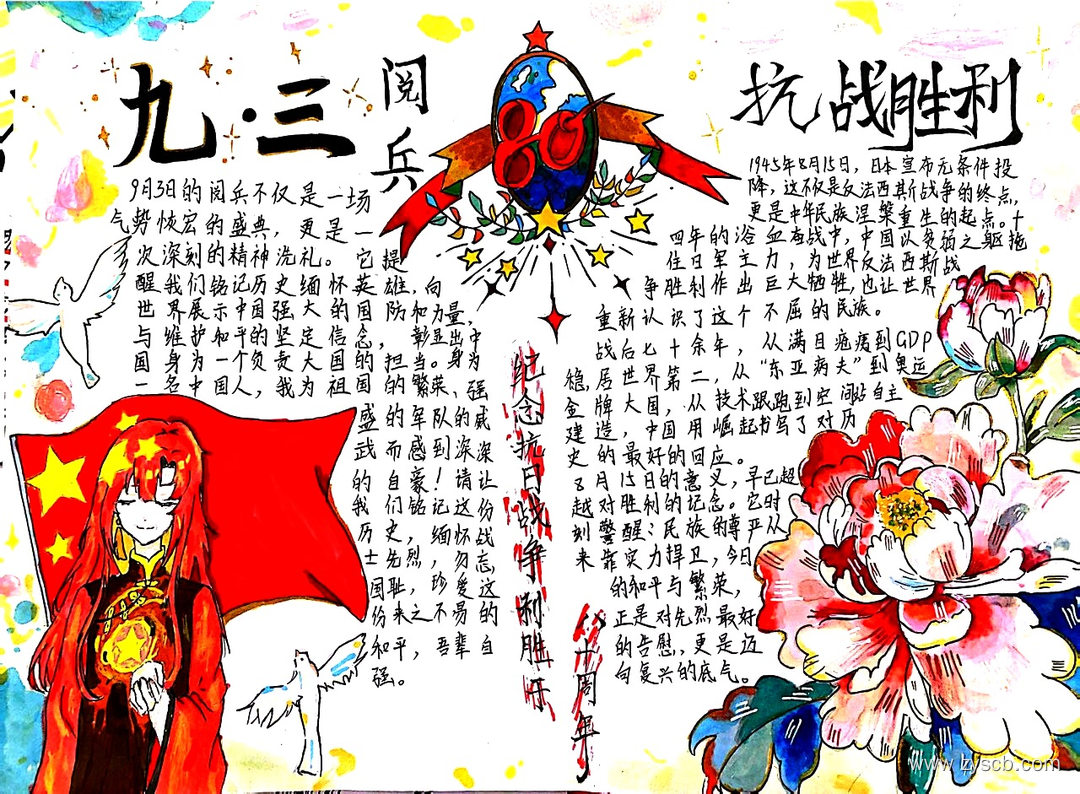 九·三
阅兵
9月3日的阅兵不仅是一场
气势恢宏的盛典，更是一
次深刻的精神洗礼。它提
醒我们铭记历史缅怀英雄，向
世界展示中国强大的国防和力量，
与维护和平的坚定信念，彰显出中
国身为一个负责大国的担当。身为
一名中国人，我为祖国的繁荣、强
盛的军队的威
武而感到深深
的自豪！请让
我们铭记这份
历史，缅怀战
士先烈，勿忘
国耻，珍爱这
份来之不易的
和平，吾辈自
强。
80
纪念抗日战争利胜
周年
抗战胜利
1945年8月15日，日本宣布无条件投
降，这不仅是反法西斯战争的终点，
更是中华民族涅槃重生的起点。十
四年的浴血奋战中，中国以贫弱之躯拖
住日军主力，为世界反法西斯战
争胜利作出巨大牺牲，也让世界
重新认识了这个不屈的民族。
战后七十余年，从满目疮痍到GDP
稳居世界第二，从“东亚病夫”到奥运
金牌大国，从技术跟跑到空间站自主
建造，中国用崛起书写了对历
史的最好的回应。
8月15日的意义，早已超
越对胜利的记念。它时
刻警醒：民族的尊严从
来靠实力捍卫，今日
的和平与繁荣，
正是对先烈最好
的告慰，更是迈
向复兴的底气。
www.lzyscb.com